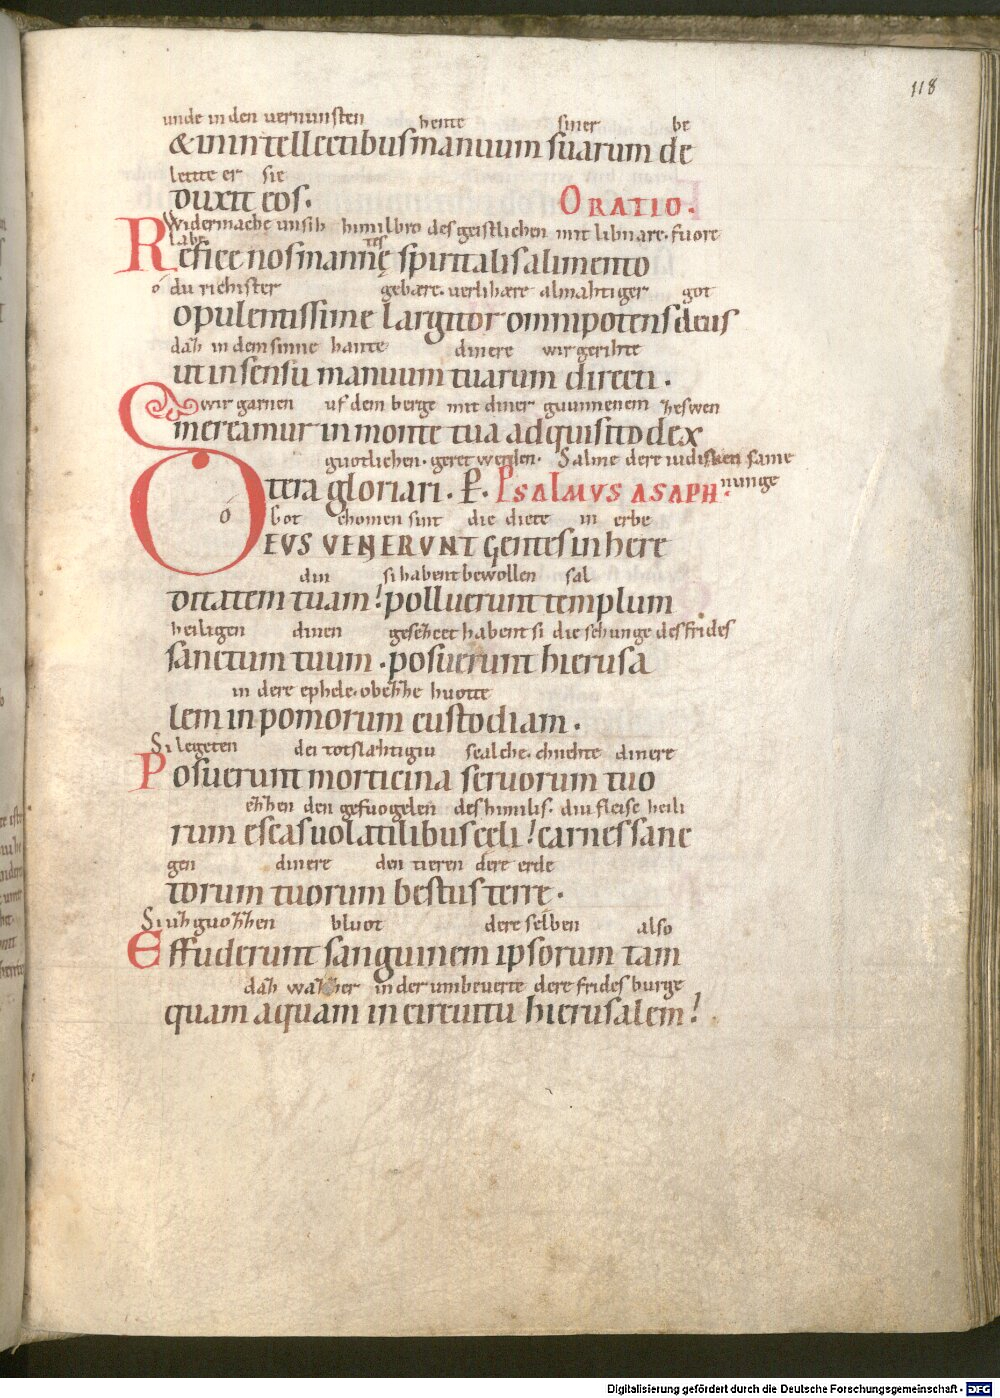 118
unde in den vernunsten hente siner be
& in intellectibus manuum suarum de
leitte er sie
duxit eos. ORATIO.
Widermache unsih himilbro des geistlichen mit libnare. fuore
labe. tes
Refice nos mannę spiritalis alimento
ó du richister gebære. verlihære almahtiger got
opulentissime largitor omnipotens deus
dah in dem sinne hante dinere wir gerihte
ut in sensu manuum tuarum directi.
wir garnen uf dem berge mit diner guunnenem zeswen
mereamur in monte tua adquisito dex
guotlichen. geret werden. Salme dere iudisken same
nunge
tera gloriari. P. PSALMVS ASAPH.
ó got chomen sint die diete in erbe
DEVS VENERVNT gentes in here
din si habent bewollen sal
ditatem tuam! polluerunt templum
heiligen dinen gesezeet habent si die schunge des frides
sanctum tuum. posuerunt hierusa
in dere ephele. obezhe huotte
lem in pomorum custodiam.
Si legeten dei totslahtigiu scalche. chnehte dinere
Posuerunt morticina servorum tuo
ezhen den gefuogelen des himilis. diu fleisc heili
rum escas volatilibus cęli! carnes sanc
gen dinere den tieren dere erde
torum tuorum bestiis terre.
Si uzguozzen bluot dere selben also
Effuderunt sanguinem ipsorum tam
daz wazzer in der umbeverte dere frides burge
quam aquam in circuitu hierusalem!
Digitalisierung gefördert durch die Deutsche Forschungsgemeinschaft - DFG